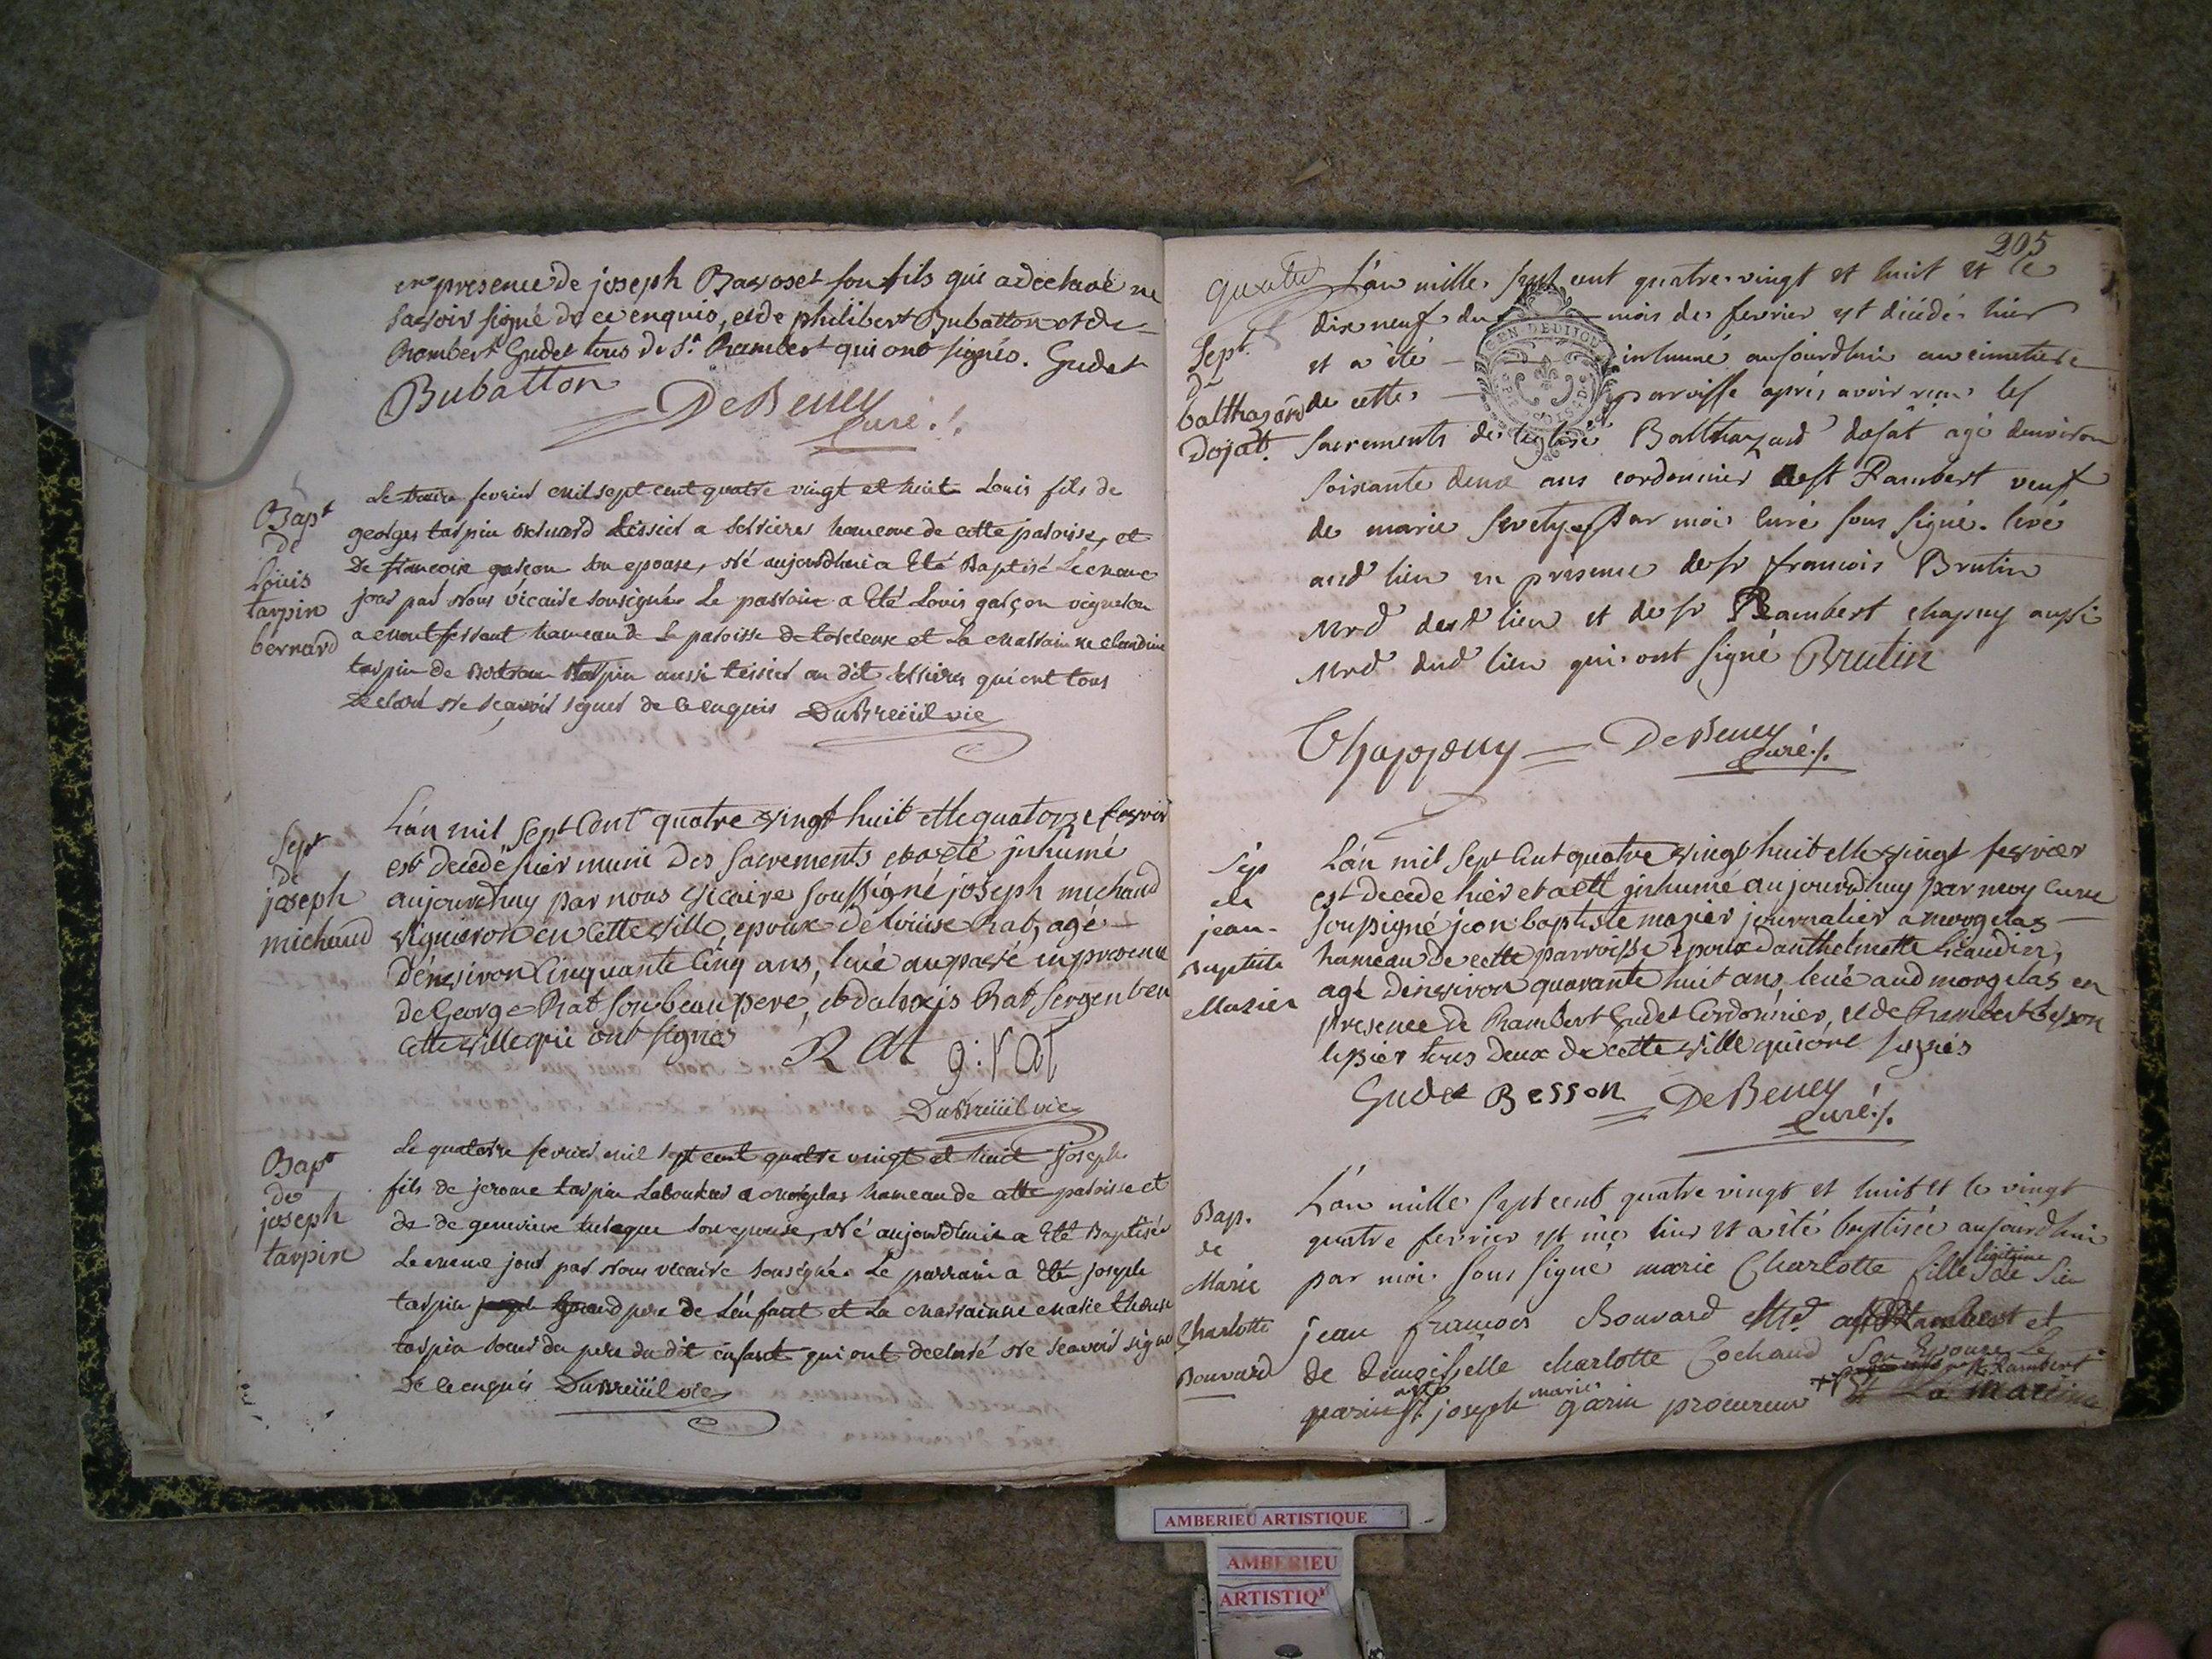 en presence de joseph Bavoset son fils qui a declaré ne
savoir signé de ce enquis, et de philibert Bubatton et de
Rambert Gudet tous de St. Rambert qui ont signés. Gudet
Bubatton
DeBeney
Curé ./.
Bapt
de
Loüis
tarpin
bernard
Le fevrier mil sept cent quatre vingt et huit Louis fils de
georges tarpin bernard tissier a hameau de cette paroisse, et
De francoise garcon son epouse, Né aujourdhui a Eté Baptisé Le meme
jour par Nous vicaire sousigné. Le parrain a Eté Louis garçon vigneron
a hameau de La paroisse de torcieux et La marrainne claudine
tarpin de tarpin aussi tissier au dit qui ont tous
Declaré Ne Sçavoir signer de ce enquis DuBreüil vic
Sept
de
joseph
michaud
L'an mil sept Cent quatre vingt huit et le quatorze fevrier
est decedé hier muni des sacrements et a eté inhumé
aujourdhuy par nous vicaire soussigné joseph michaud
vigneron en cette ville, epoux de loüise Rat, agé
d'environ Cinquante Cinq ans, levé au pavé en presence
de George Rat son beau pere, et d'alexis Rat sergent en
cette ville qui ont signés
Rat g: rat
DuBreüil vic
Bapt
de
joseph
tarpin
Le quatorze fevrier mil sept cent quatre vingt et huit Joseph
fils de jerome tarpin Laboureur a morgelas hameau de cette paroisse et
de de genevieve son epouse, Né aujourdhui a Eté Baptisé
Le meme jour par Nous vicaire sousigné. Le parrain a Eté joseph
tarpin grand pere de L'enfant et La marrainne marie therese
tarpin soeur du pere du dit enfant qui ont declaré Ne Sçavoir signer
De ce enquis DuBreüil vic
205
quatre
Sept.
de
balthazard
Dojat.
L'an mille sept cent quatre vingt et huit et le
dix neuf du mois de fevrier est décédé hier
et a été inhumé aujourdhui au cimetiere
de cette parroisse aprés avoir recu les
sacrements de l'eglise Balthazard dojat agé denviron
soixante deux ans cordonnier de st Rambert veuf
de marie par moi Curé sous signé. levé
aud lieu en presence de sr francois Brutin
Mrd dud lieu et de sr Rambert chapuy aussi
Mrd dud lieu qui ont signé Brutin
Chappuy DeBeney
Curé ./.
GEN DE DIJON
Sep
de
jean-
Baptiste
Mazier
L'an mil sept Cent quatre vingt huit et le vingt fevrier
est decede hier et a eté inhumé aujourdhuy par moy Curé
soussigné jean baptiste mazier journalier a morgelas
hameau de cette parroisse epoux d'anthelmette
agé d'environ quarante huit ans, levé aud morgelas en
presence de Rambert Gudet Cordonnier, et de Rambert Besson
tous deux de cette ville qui ont signés
Gudet Besson DeBeney
Curé ./.
Bap.
de
Marie
Charlotte
Bouvard
L'an mille sept cent quatre vingt et huit et le vingt
quatre fevrier est née hier et a été baptisée aujourdhui
par moi sous signé marie Charlotte fille legitime de Sieur
jean francois Bouvard Md a st Rambert et
de demoiselle charlotte Cochaud Son Epouse Le
parin st. joseph marie garin procureur a st Rambert et La marine
AMBERIEU ARTISTIQUE
AMBERIEU
ARTISTIQ